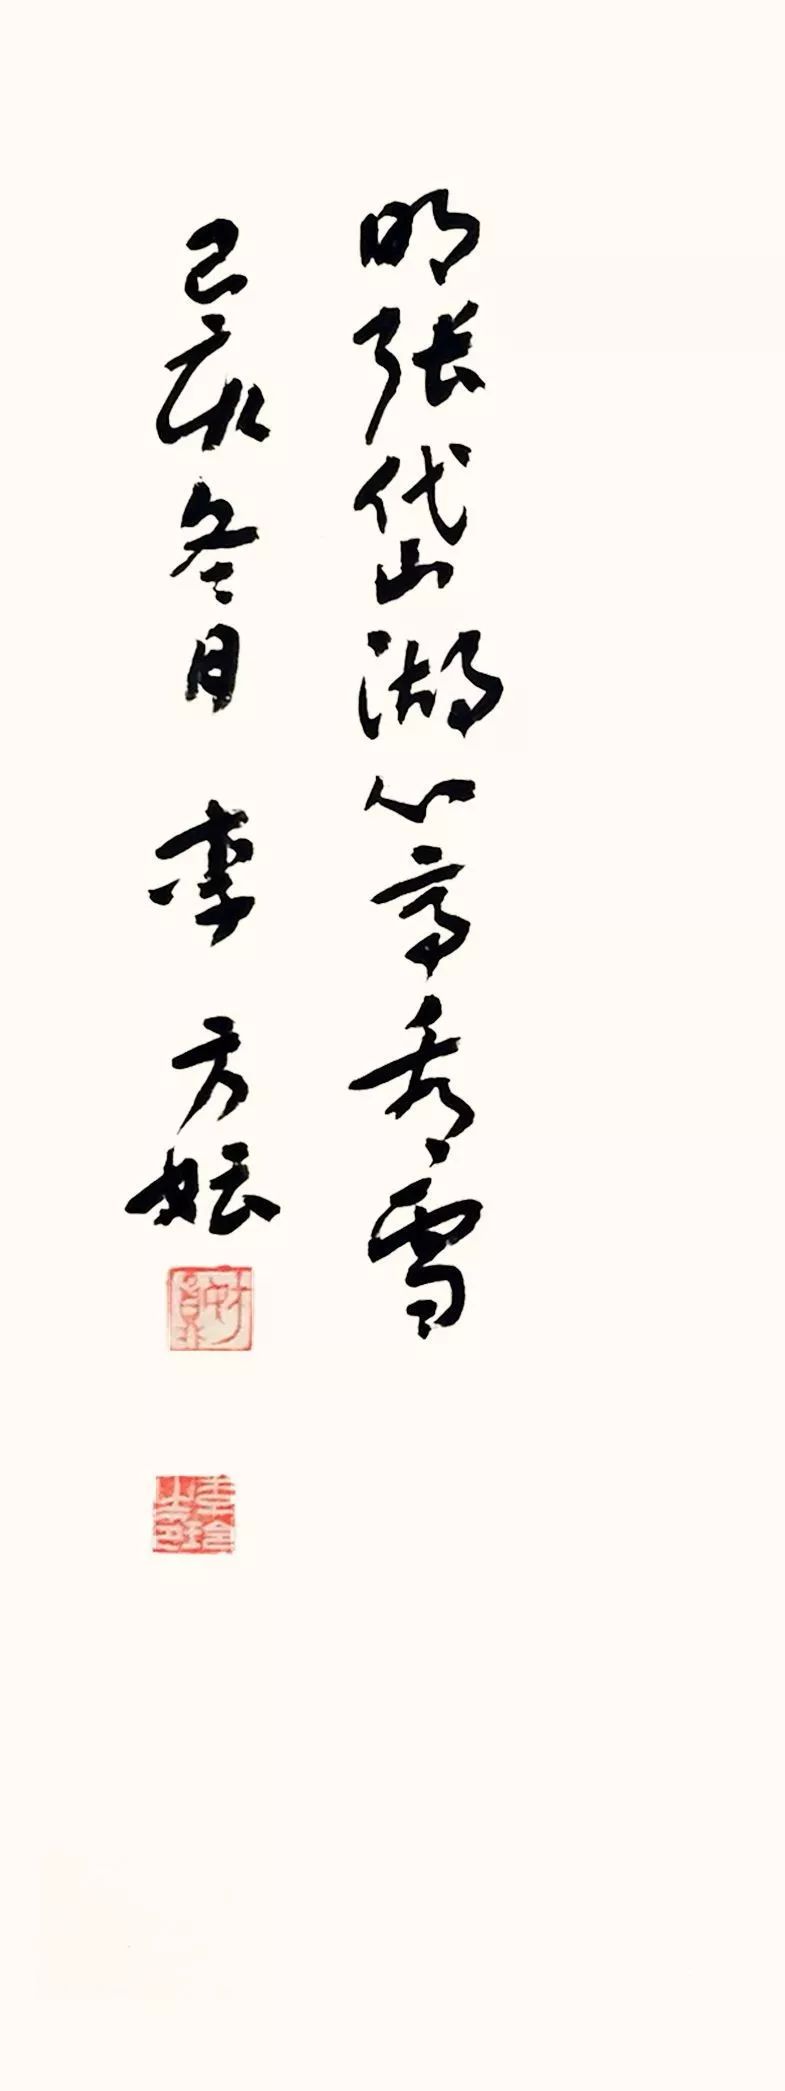 明張岱湖心亭看雪
己亥冬月 李方妘